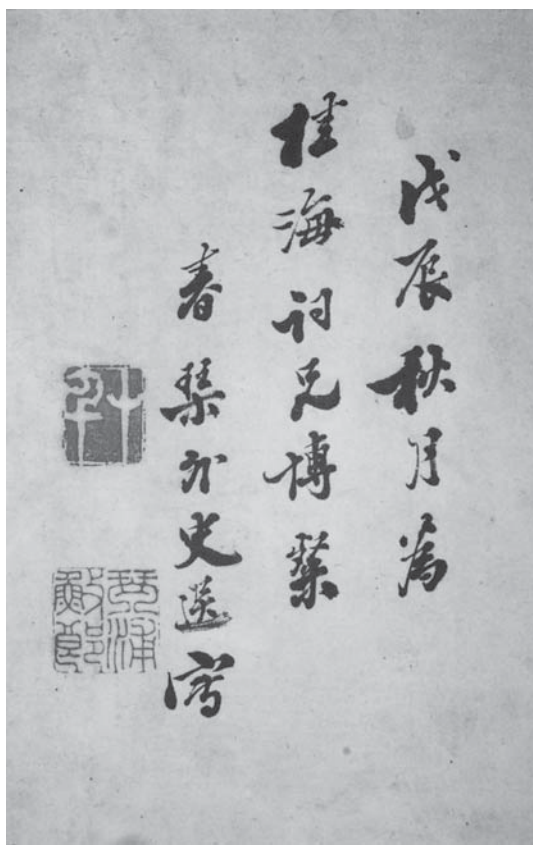 戊辰秋月為
桂海詞兄博粲
春琴外史選寫